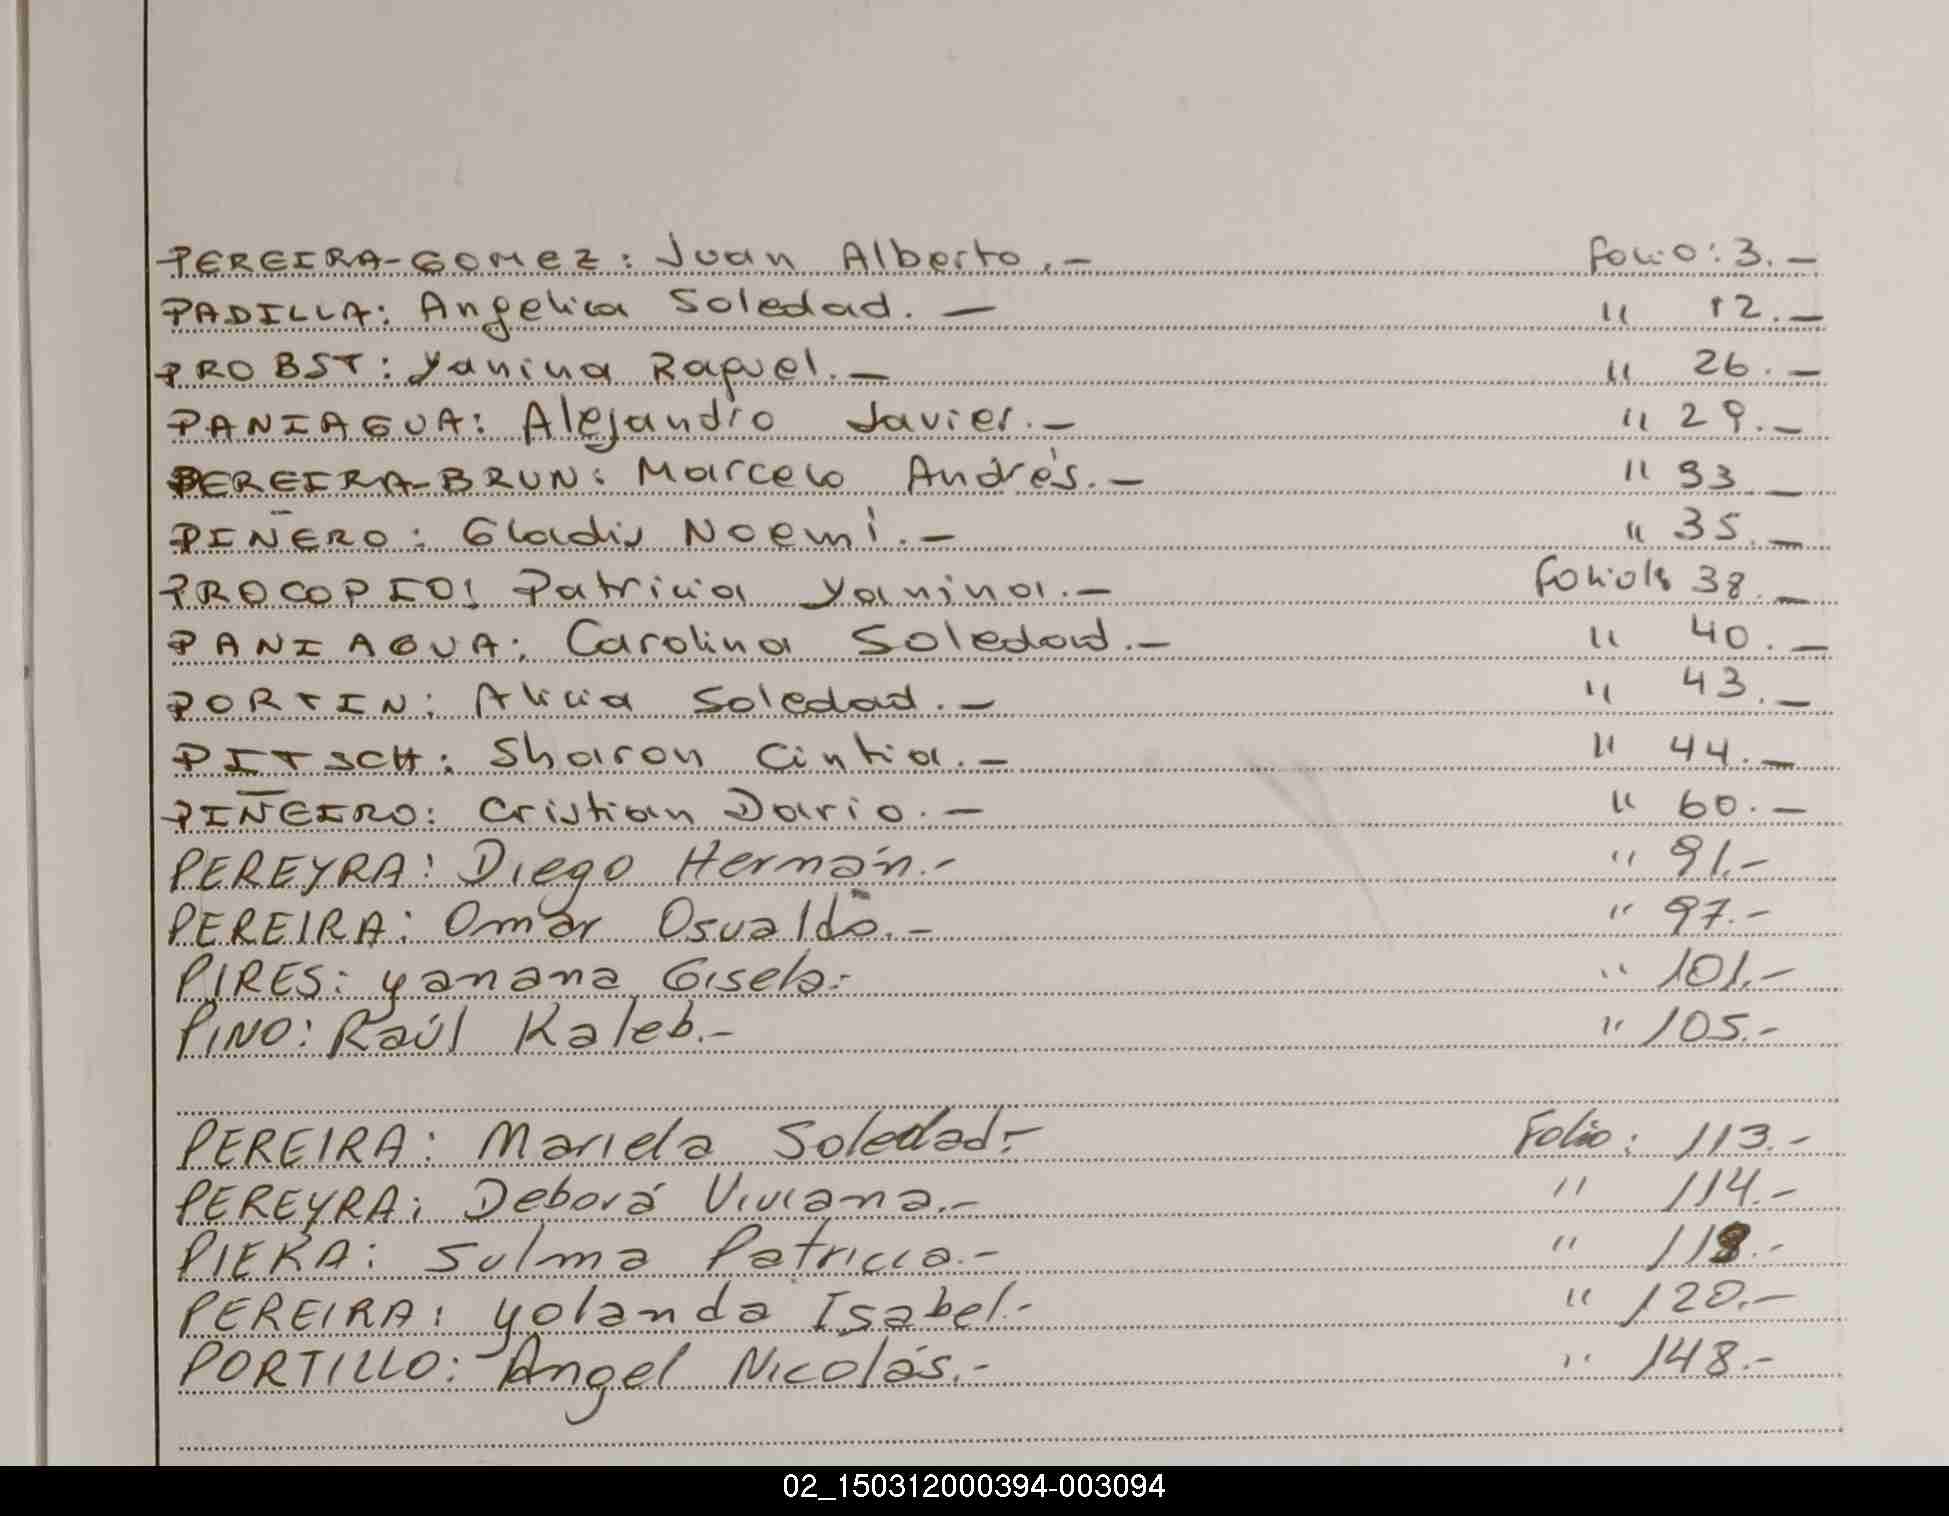 PEREIRA-GOMEZ: Juan Alberto.- Folio: 3.-
PADILLA: Angelica Soledad.- " 12.-
PROBST: Yanina Raquel.- " 26.-
PANIAGUA: Alejandro Javier.- " 29.-
PEREIRA-BRUN: Marcelo Andrés.- " 33.-
PIÑERO: Gladis Noemí.- " 35.-
PROCOPIO: Patricia Yanina.- 38.-
PANIAGUA: Carolina Soledad.- " 40.-
PORTIN: Alicia Soledad.- " 43.-
PITSCH: Sharon Cintia.- " 44.-
PIÑEIRO: Cristian Dario.- " 60.-
PEREYRA: Diego Hernán.- " 91.-
PEREIRA: Omar Osvaldo.- " 97.-
PIRES: Yanana Gisela.- " 101.-
PINO: Raúl Kaleb.- " 105.-
PEREIRA: Mariela Soledad.- Folio: 113.-
PEREYRA: Deborá Viviana.- " 114.-
PIERA: Sulma Patricia.- "
PEREIRA: Yolanda Isabel.- " 120.-
PORTILLO: Angel Nicolás.- " 148.-
02_150312000394-003094